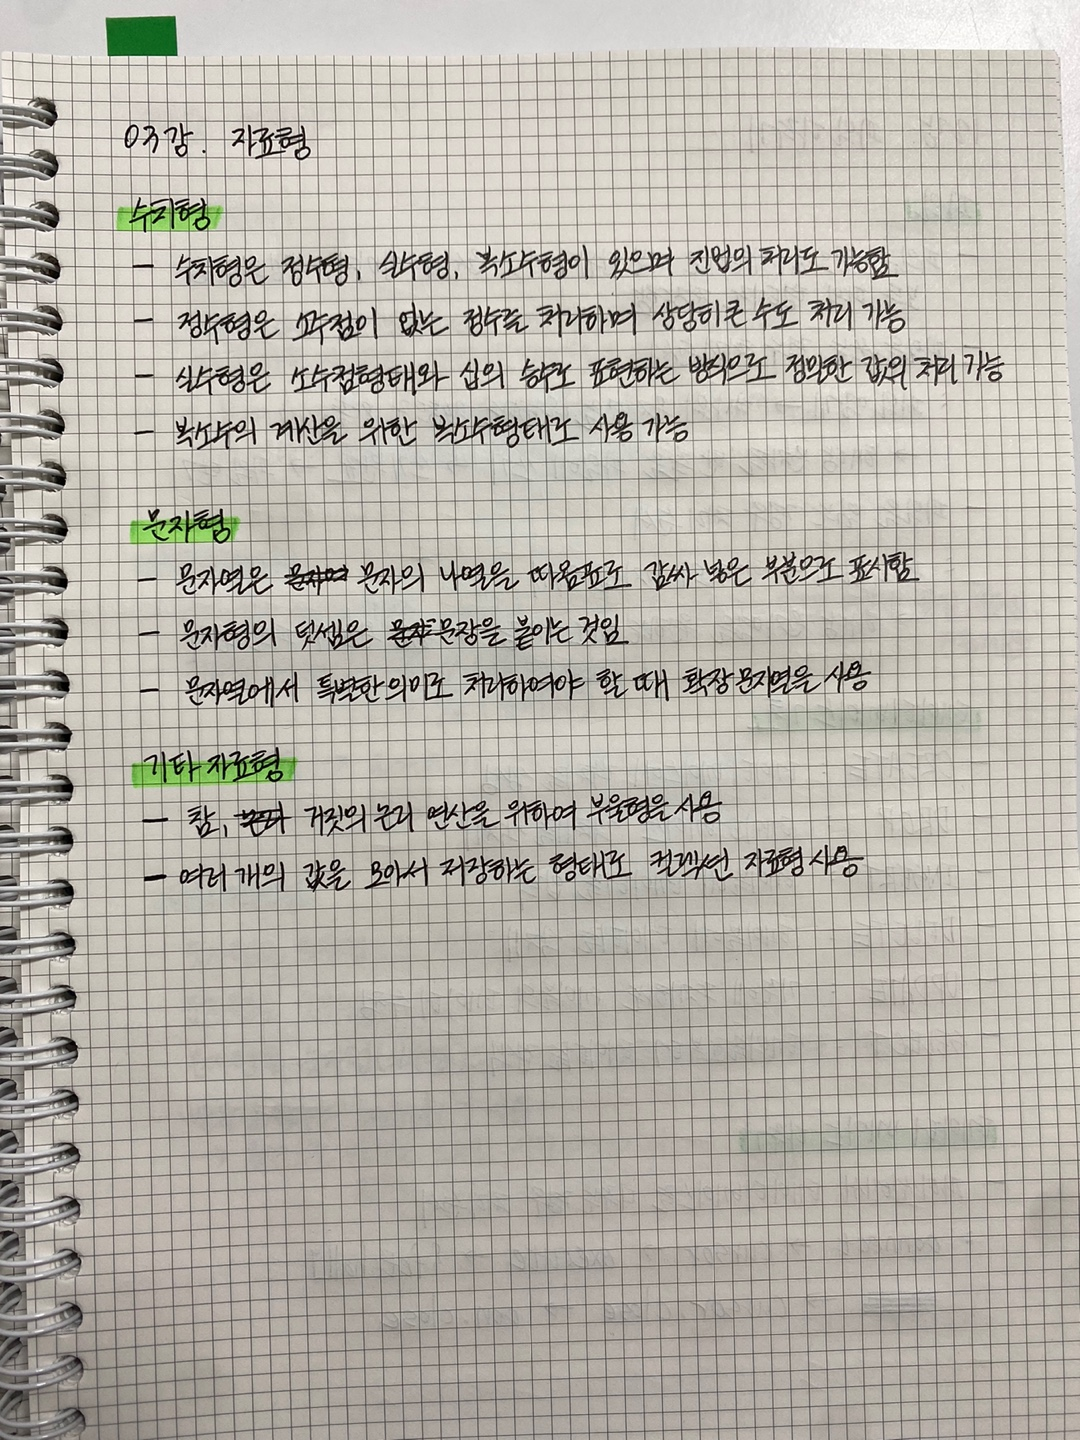 03강. 자료형
수치형
- 수치형은 정수형, 실수형, 복소수형이 있으며 진법의 처리도 가능함
- 정수형은 소수점이 없는 정수를 처리하며 상당히 큰 수도 처리 가능
- 실수형은 소수점형태와 십의 승수로 표현하는 방식으로 정밀한 값의 처리 가능
- 복소수의 계산을 위한 복소수형태로 사용 가능
문자형
- 문자열은 문자의 나열을 따옴표로 감싸 넣은 부분으로 표시함
- 문자형의 덧셈은 문장을 붙이는 것임
- 문자열에서 특별한 의미로 처리하여야 할 때 확장 문자열을 사용
기타 자료형
- 참, 거짓의 논리 연산을 위하여 부울형을 사용
- 여러 개의 값을 모아서 저장하는 형태로 컬렉션 자료형 사용